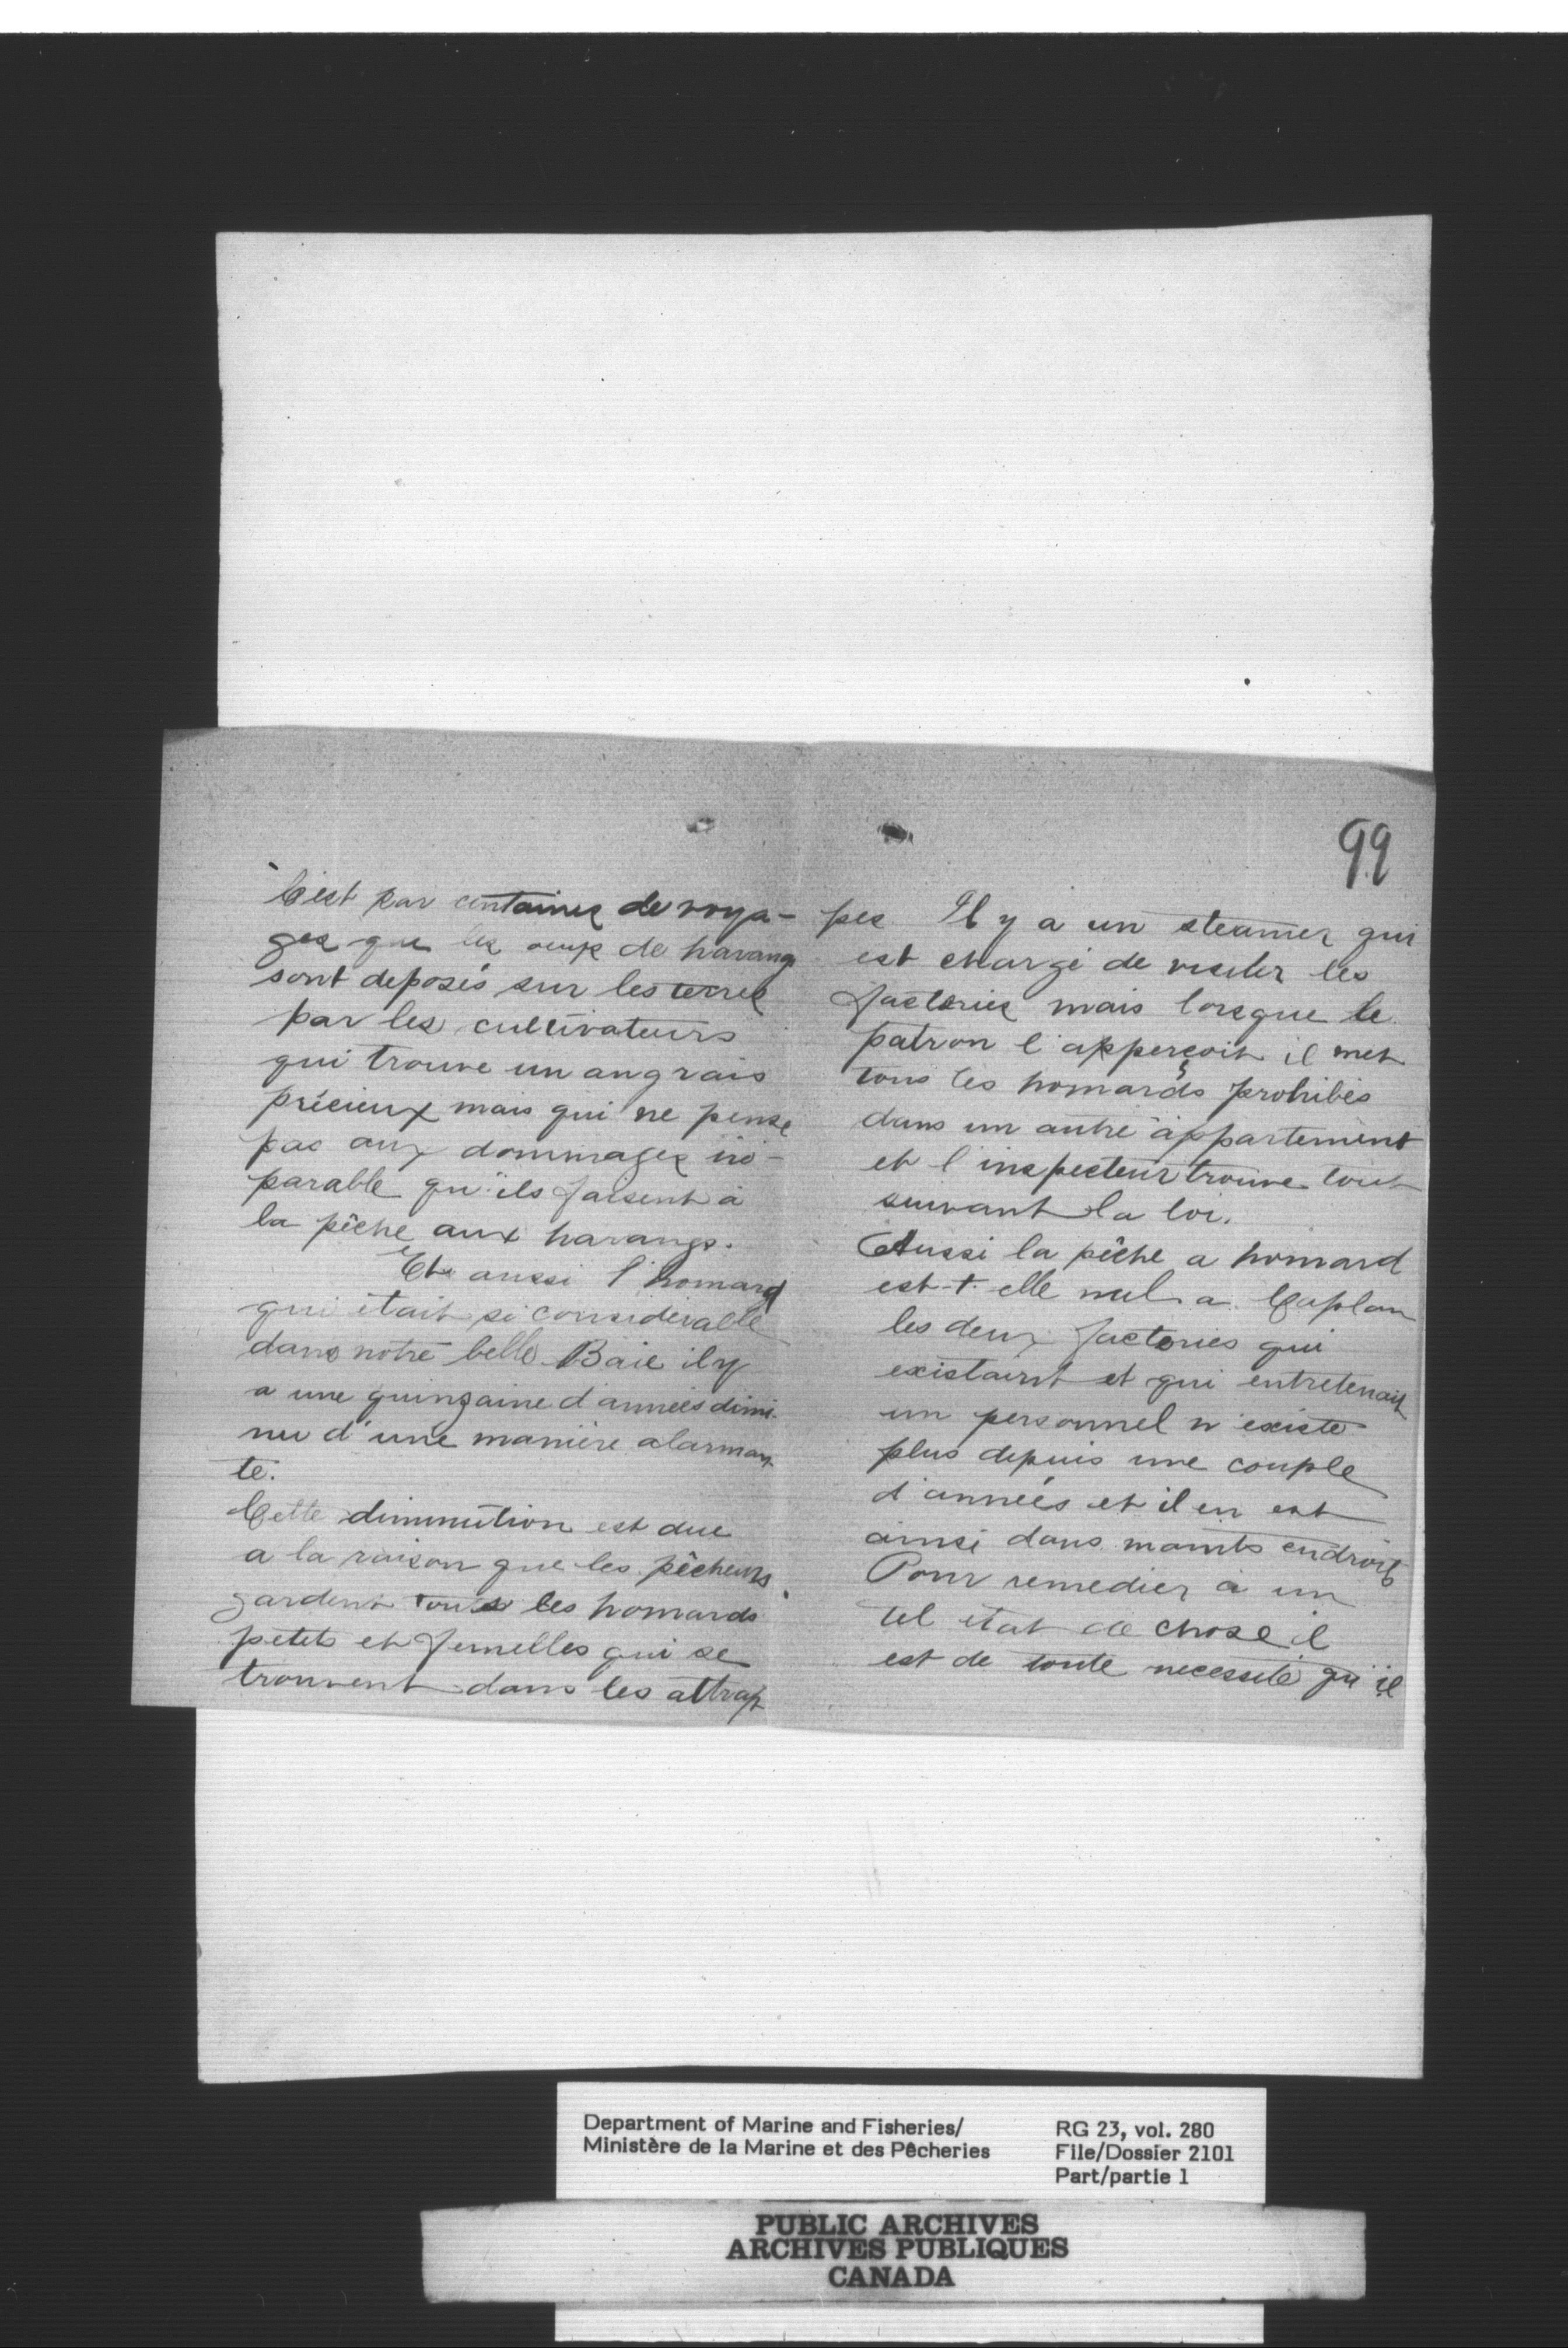 C'est par centaines de voya-
ges que les oeufs de harangs
sont deposés sur les terres
par les cultivateurs
qui trouve un angrais
précieux mais qui ne pense
pas aux dommages iré-
parable qu'ils faisent à
la pêche aux harangs.
Et aussi l'homard
qui était si considérable
dans notre belle Baie il y
a une quinzaine d'années dimi-
nu d'une manière alarman-
te.
Cette diminution est due
a la raison que les pêcheurs
gardent touts les homards
petits et femelles qui se
trouvent dans les attrap
99
pes. Il y a un steamer qui
est chargé de visiter les
factories mais lorsque le
patron l'apperçoit il met
tous les homards prohibés
dans un autre appartement
et l'inspecteur trouve tout
suivant la loi.
Aussi la pêche a homard
est-t-elle nul a Caplan
les deux factories qui
existaient et qui entretenait
un personnel n'existe
plus depuis une couple
d'années et il en est
ainsi dans maints endroits
Pour remedier à un
tel état de chose il
est de toute necessité qu'il
Department of Marine and Fisheries/
Ministère de la Marine et des Pêcheries
RG 23, vol. 280
File/Dossier 2101
Part/partie 1
PUBLIC ARCHIVES
ARCHIVES PUBLIQUES
CANADA